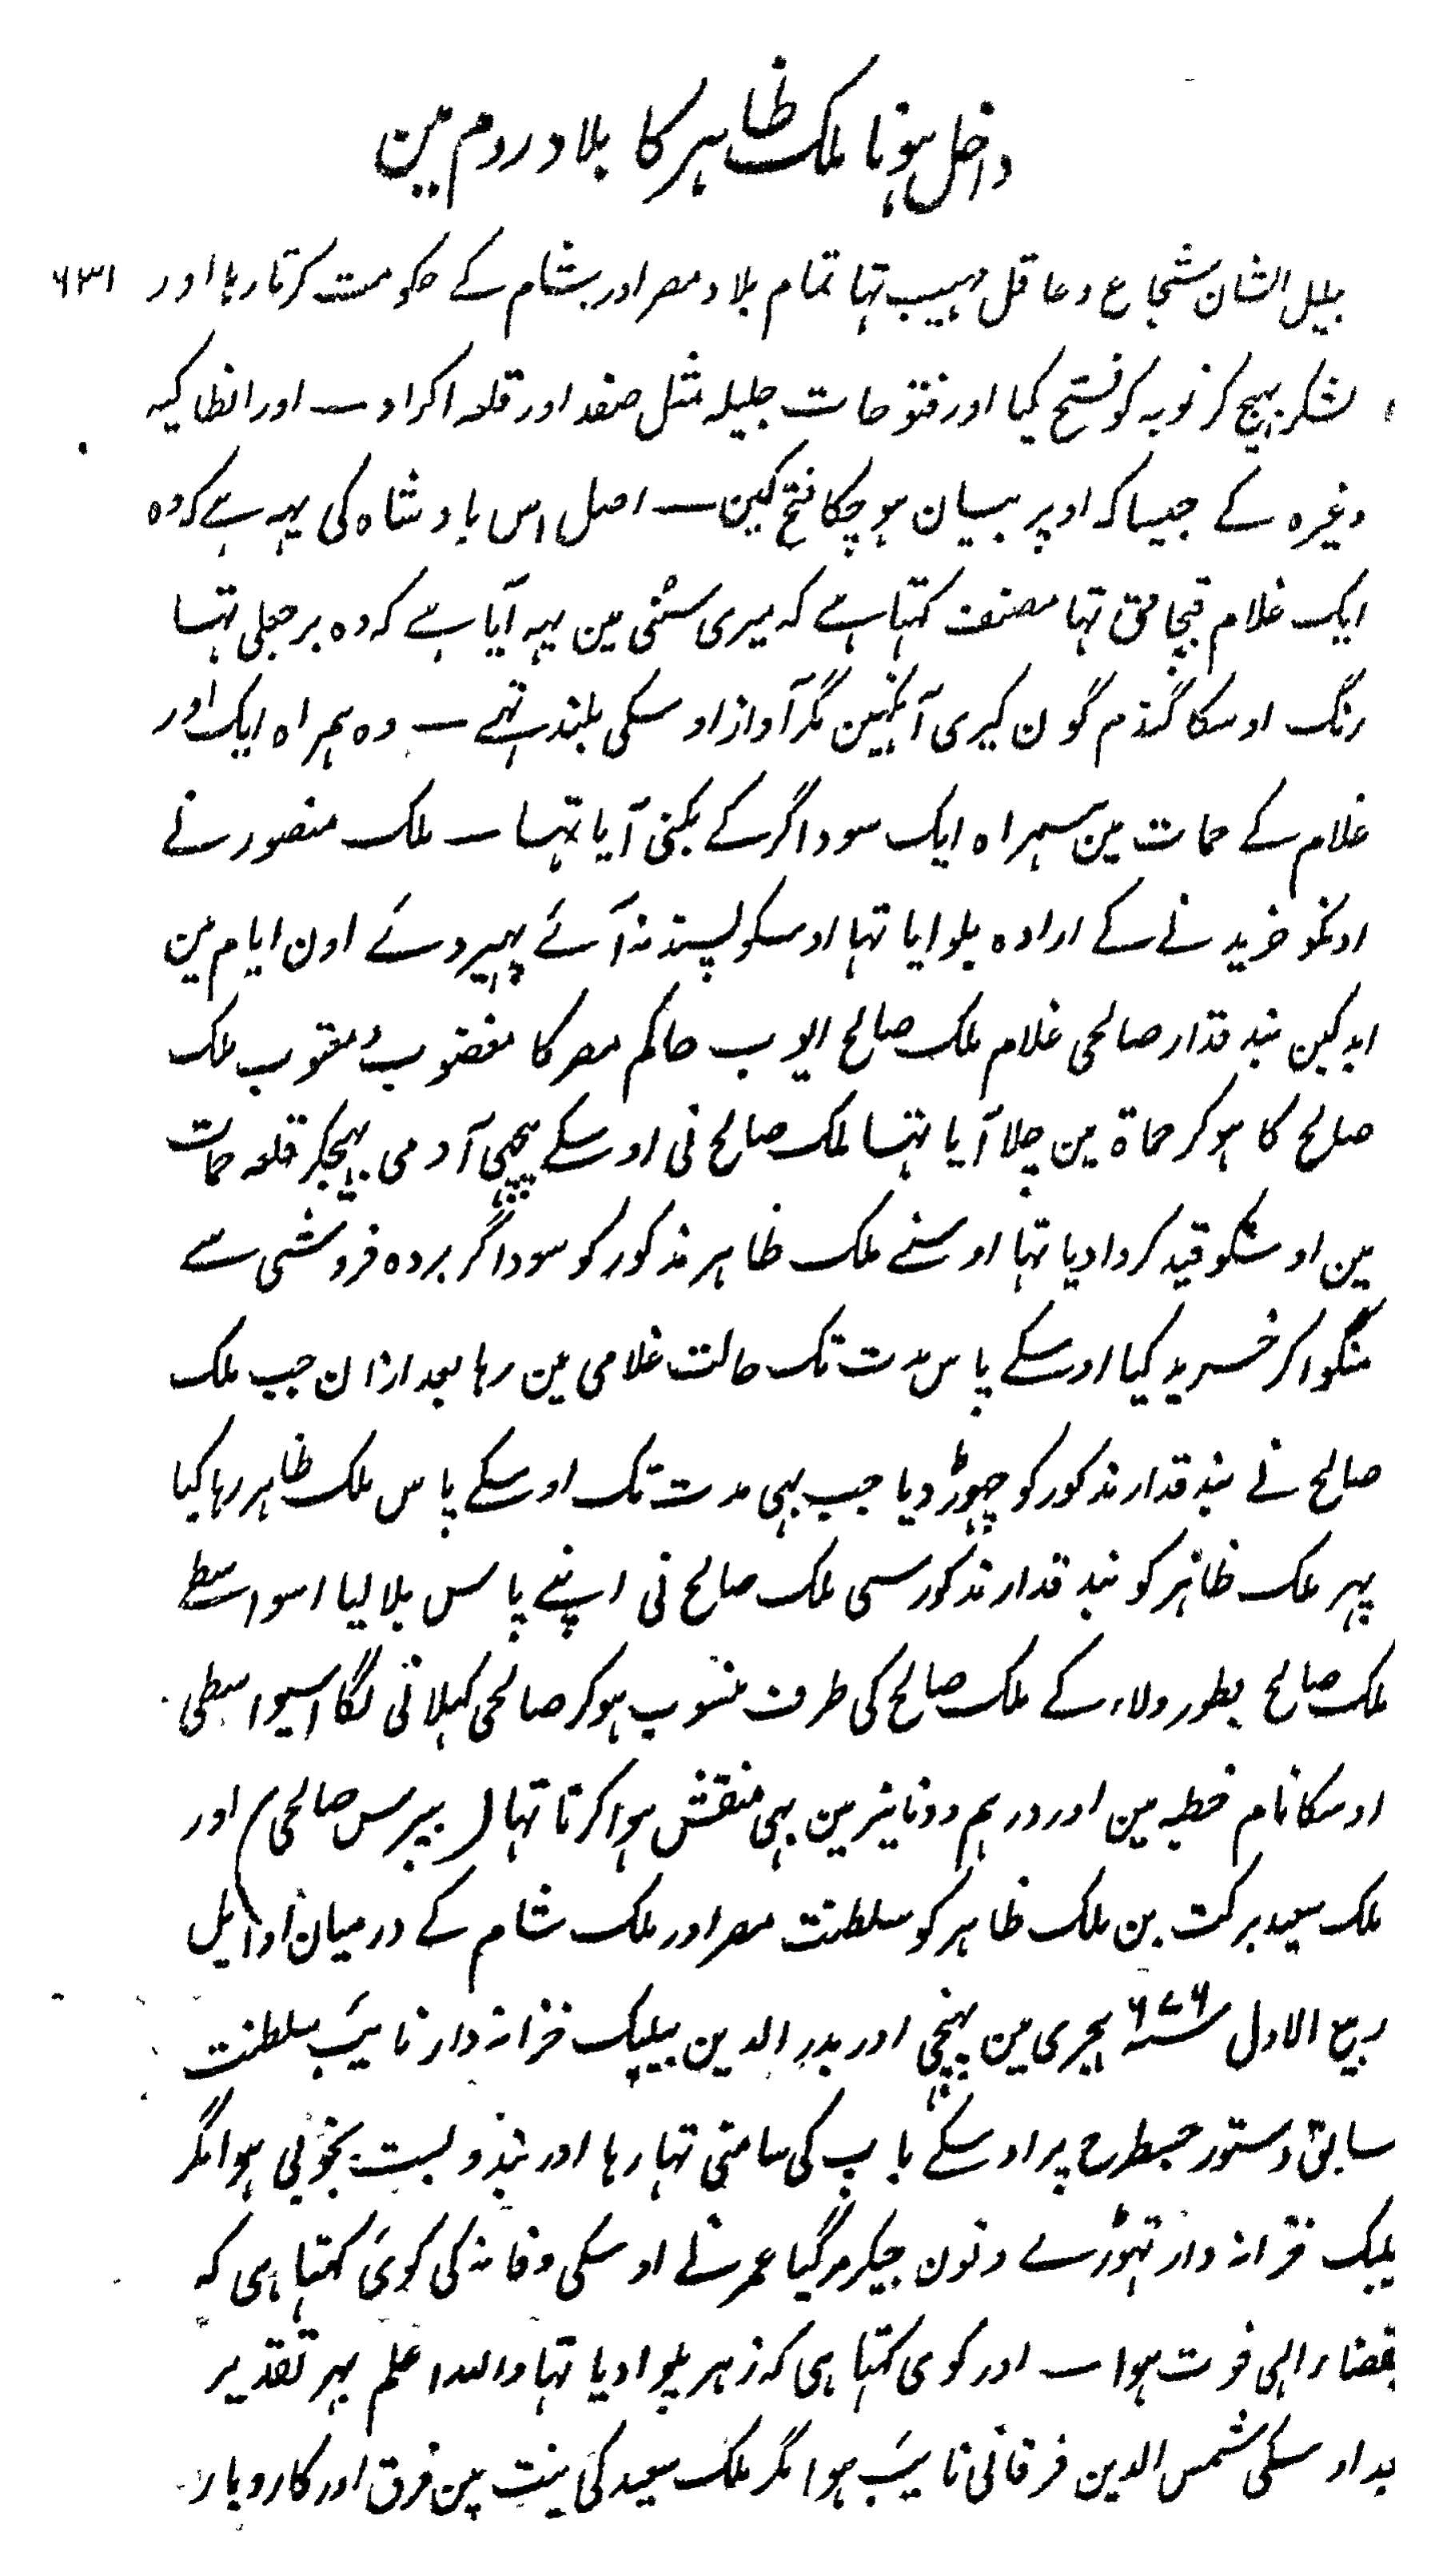 داخل ہونا ملک ظاہر کا بلاد روم مین
جلیل الشان شجاع و عاقل مہیب تہا تمام بلاد مصر اور شام کے حکومت کرتا رہا اور ۶۳۱
لشکر بہیج کر نوبہ کو فتح کیا اور فتوحات جلیلہ مثل صفد اور قلعہ اکراد ۔ اور انطاکیہ
وغیرہ کے جیسا کہ اوپر بیان ہو چکا فتح کین ۔ اصل اس بادشاہ کی یہہ ہے کہ وہ
ایک غلام قبچاقی تہا مصنف کہتا ہے کہ میری سننی مین یہہ آیا ہے کہ وہ برجعلی تہا
رنگ اوسکا گندم گون کیری آنکہین مگر آواز اوسکی بلند تہے ۔ وہ ہمراہ ایک اور
غلام کے حمات مین ہمراہ ایک سوداگر کے بکنی آیا تہا ۔ ملک منصور نے
اونکو خریدنے کے ارادہ بلوایا تہا اوسکو پسند نہ آئے پہیر دئے اون ایام مین
ایدکین بندقدار صالحی غلام ملک صالح ایوب حاکم مصر کا مغضوب و معتوب ملک
صالح کا ہو کر حماۃ مین چلا آیا تہا ملک صالح نی اوسکے پیچہی آدمی بہیجکر قلعہ حمات
مین اوسکو قید کروا دیا تہا اوسنے ملک ظاہر مذکور کو سوداگر بردہ فروشی سے
منگوا کر خرید کیا اوسکے پاس مدت تک حالت غلامی مین رہا بعد ازان جب ملک
صالح نے بندقدار مذکور کو چہوڑ دیا جب بہی مدت تک اوسکے پاس ملک ظاہر رہا کیا
پہر ملک ظاہر کو بندقدار مذکور سی ملک صالح نی اپنے پاس بلا لیا اسواسطے
ملک صالح بطور ولاء کے ملک صالح کی طرف منسوب ہو کر صالحی کہلانی لگا اسیواسطی
اوسکا نام خطبہ مین اور درہم و دنانیر مین بہی منقش ہوا کرتا تہا (بیبرس صالحی) اور
ملک سعید برکت بن ملک ظاہر کو سلطنت مصر اور ملک شام کے درمیان اوایل
ربیع الاول سنہ ۶۷۶ ہجری مین پہنچی اور بدر الدین بیلیک خزانہ دار نایب سلطنت
سابق دستور جسطرح پر اوسکے باپ کی سامنی تہا رہا اور بندوبست بخوبی ہوا مگر
بیلیک خزانہ دار تہوڑے دنون جیکر مر گیا عمر نے اوسکی وفا نہ کی کوئی کہتا ہی کہ
بقضاء الہی فوت ہوا ۔ اور کوی کہتا ہی کہ زہر پلوا دیا تہا واللہ اعلم بہر تقدیر
بعد اوسکی شمس الدین فرقانی نایب ہوا مگر ملک سعید کی نیت مین فرق اور کاروبار